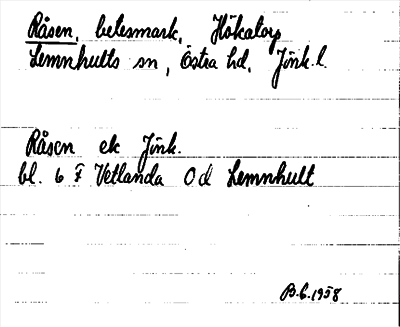 Råsen, betesmark, Hökatorp
Lemnhults sn, Östra hd, Jönk. l.
Råsen ek Jönk.
bl. 6 F Vetlanda Od Lemnhult
B.E. 1958